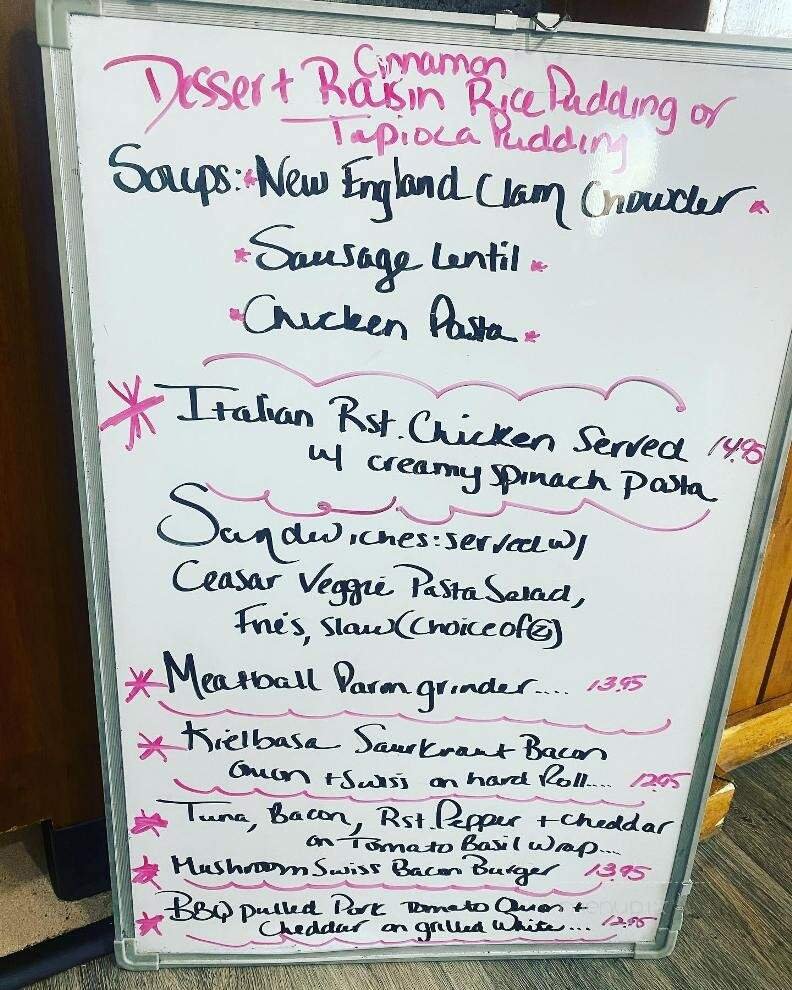 Cinnamon
Dessert Raisin Rice Pudding or
Tapioca Pudding
Soups: *New England Clam Chowder *
*Sausage Lentil *
*Chicken Pasta *
* Italian Rst. Chicken Served 14.95
w/ creamy spinach pasta
Sandwiches: served w/
Ceasar Veggie Pasta Salad,
Frie's, slaw (choice of 2)
* Meatball Parm grinder.... 13.95
* Kielbasa Saurkraut Bacon
onion + Swiss on hard Roll.... 12.95
* Tuna, Bacon, Rst. Pepper + cheddar
on Tomato Basil wrap....
* Mushroom Swiss Bacon Burger 13.95
* BBQ pulled Pork Tomato Onion +
Cheddar on grilled White... 12.95